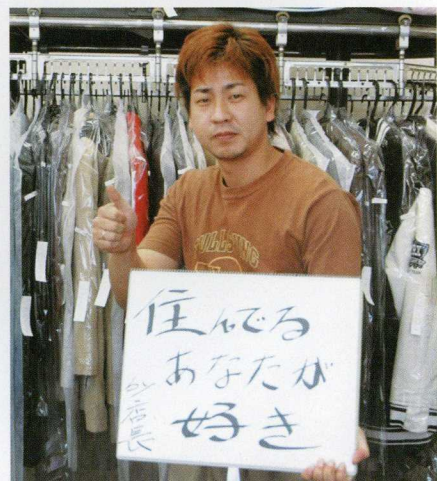 住んでる
あなたが
好き
by店長